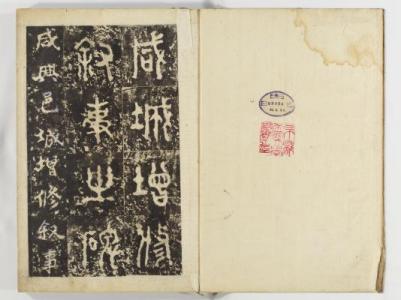 咸城增修
叙事之碑
咸興邑城增修叙事